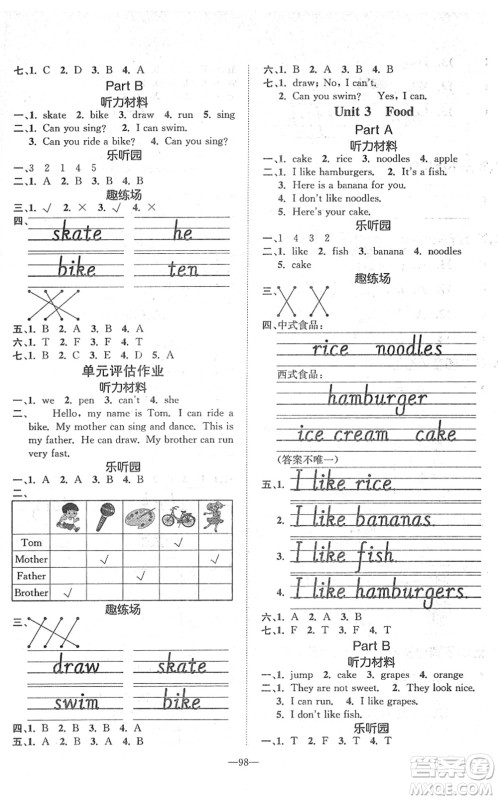 七、1. C  2. D  3. B  4. A
Part B
听力材料
一、1. skate  2. bike  3. draw  4. run  5. sing
二、1. Can you sing?  2. I can swim.
3. Can you ride a bike?  4. Can you sing?
乐听园
一、3  2  1  4  5
二、1. A  2. B  3. B  4. A
趣练场
三、1. √  2. ×  3. √  4. ×
四、skate  he
bike  ten
五、1. B  2. A  3. A  4. A
六、1. T  2. T  3. F  4. F
七、1. C  2. B  3. A  4. A
单元评估作业
听力材料
一、1. we  2. pen  3. can't  4. she
二、Hello, my name is Tom. I can ride a
bike. My mother can sing and dance. This is
my father. He can draw. My brother can run
very fast.
乐听园
一、1. B  2. A  3. B  4. A
二、
Tom √
Mother √ √
Father √
Brother √
趣练场
三、
draw  skate
swim  bike
四、1. B  2. B  3. A  4. B
五、1. A  2. A  3. B  4. A
六、1. B  2. B  3. A  4. A
七、1. draw; No, I can't.
2. Can you swim?  Yes, I can.
Unit 3  Food
Part A
听力材料
一、1. cake  2. rice  3. noodles  4. apple
二、1. I like hamburgers.  2. It's a fish.
3. Here is a banana for you.
4. I don't like noodles.
5. Here's your cake.
乐听园
一、1  4  3  2
二、1. like  2. fish  3. banana  4. noodles
5. cake
趣练场
三、
四、中式食品：
rice  noodles
西式食品：
hamburger
ice cream  cake
(答案不唯一)
五、1. I like rice
2. I like bananas.
3. I like fish
4. I like hamburgers
六、1. A  2. A  3. B  4. B
七、1. F  2. T  3. F  4. T
Part B
听力材料
一、1. jump  2. cake  3. grapes  4. orange
二、1. They are not sweet.  2. They look nice.
3. I can jump.  4. I like grapes.
5. I don't like fish.
乐听园
一、1. T  2. F  3. F  4. T
—98—